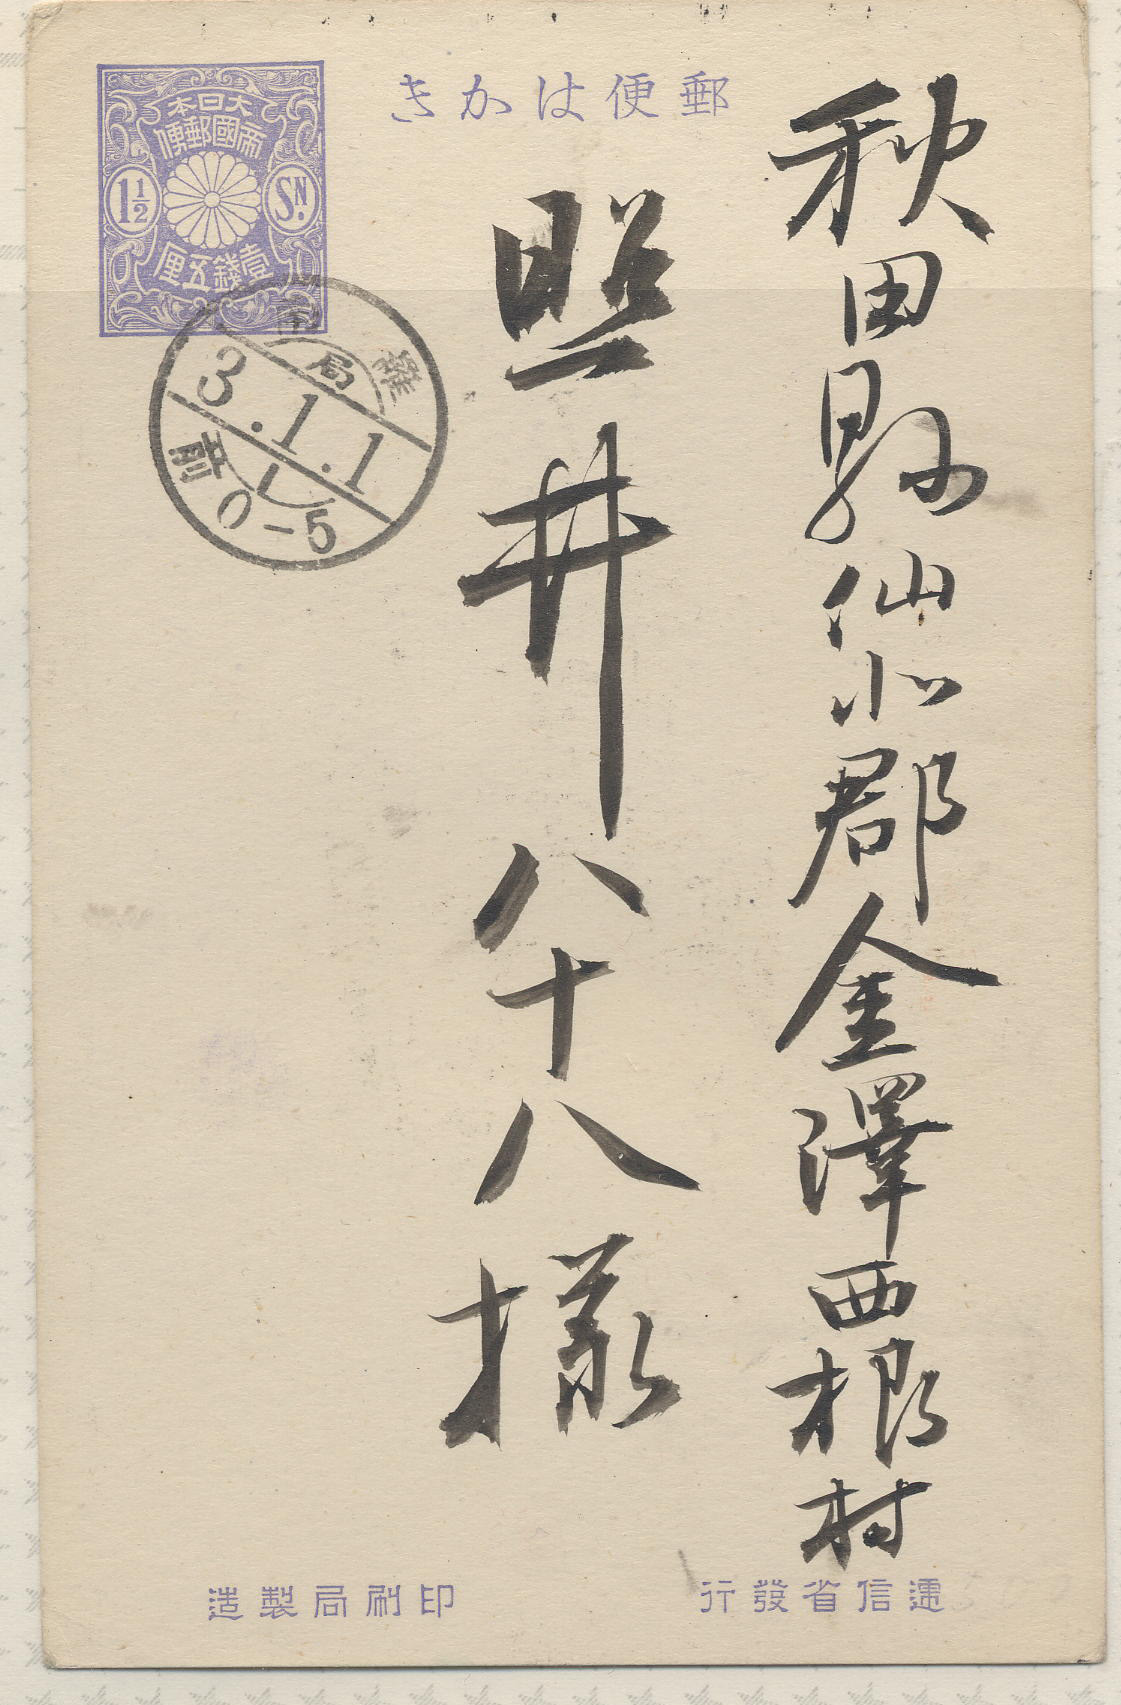 郵便はかき
大日本
帝國郵便
1½ SN.
壹錢五厘
羅南
局
3.1.1
前0-5
秋田縣仙北郡金澤西根村
照井八十八様
逓信省發行
印刷局製造